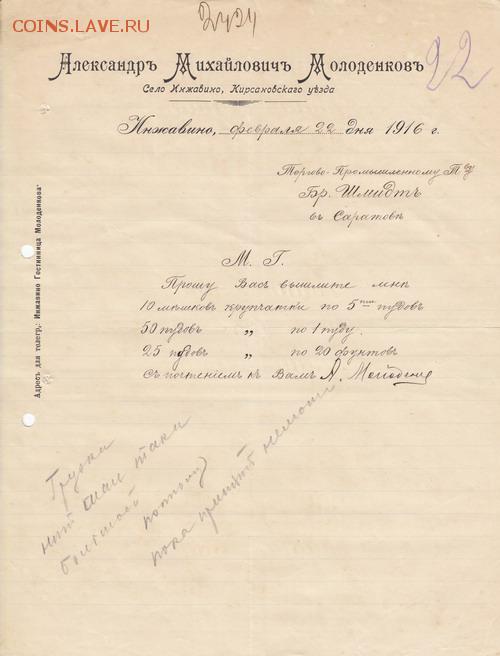 COINS.LAVE.RU
2424
Александръ Михайловичъ Молоденковъ
22
Село Инжавино, Кирсановскаго уѣзда
Инжавино, февраля 22 дня 1916 г.
Торгово-Промышленному Т-ву
Бр. Шмидтъ
въ Саратовѣ
М. Г.
Прошу Васъ вышлите мнѣ
10 мѣшковъ крупчатки по 5ти пудовъ
50 пудовъ „ по 1 пуду.
25 пудовъ „ по 20 фунтовъ
Съ почтеніемъ къ Вамъ А. Молоденк
Адресъ для телегр.: Инжавино Гостинница Молоденкова
пока